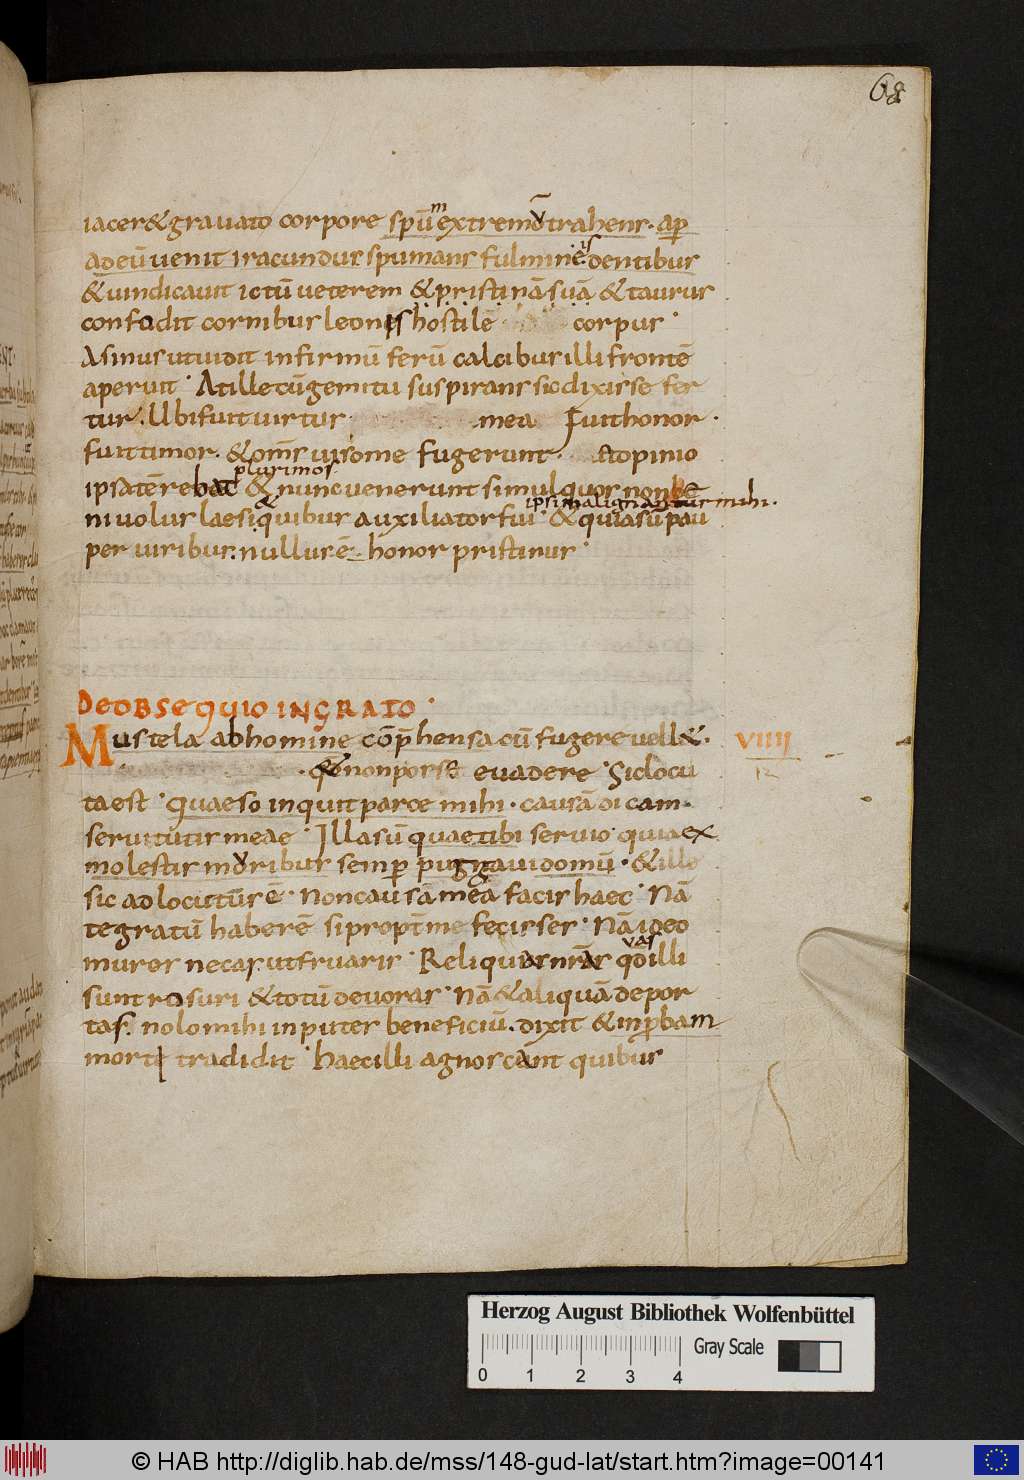 68
iacer&grauato corpore spūm extremū trahens. ap
adeū uenit iracundus spumans fulmineis dentibus
&uindicauit ictū ueterem &pristinā suā &taurus
confodit cornibus leonis hostilē corpus.
Asinus utuidit infirmū ferū calcibus illi frontē
aperuit. Atille cū gemitu suspirans sic dixisse fer
tur. Ubi fuit uirtus mea Fuit honor.
fuit timor. &oms uiso me fugerunt. &opinio
plurimos
ipsa terebat & nunc uenerunt simul quos non be
ipsi malignantur mihi.
niuolus laesi quibus auxiliator fui. &quia sū pau
per uiribus. nullus ē honor pristinus.
DE OBSEQUIO INGRATO.
Mustela abhomine cōp̄hensa cū fugere uell&.
VIIII
12
.&nonposs& euadere. Sic locu
ta est. quaeso inquit parce mihi. causā dicam.
seruitutis meae. Illa sū quae tibi seruio. quia ex
molestis moribus semp pugnaui domū. &ille
sic ad locutus ē. Non causā mea facis haec. Nā
te gratū haberē si propt̄ me fecisses. Nā ideo
mures necas. ut fruaris. Reliquias nrās quas illi
sunt rosuri &totū deuoras. Nā &aliquā depor
tas. nolo mihi inputes beneficiū. dixit &inp̄bam
morti tradidit. haec illi agnoscant quibus
Herzog August Bibliothek Wolfenbüttel
Gray Scale
0 1 2 3 4
© HAB http://diglib.hab.de/mss/148-gud-lat/start.htm?image=00141